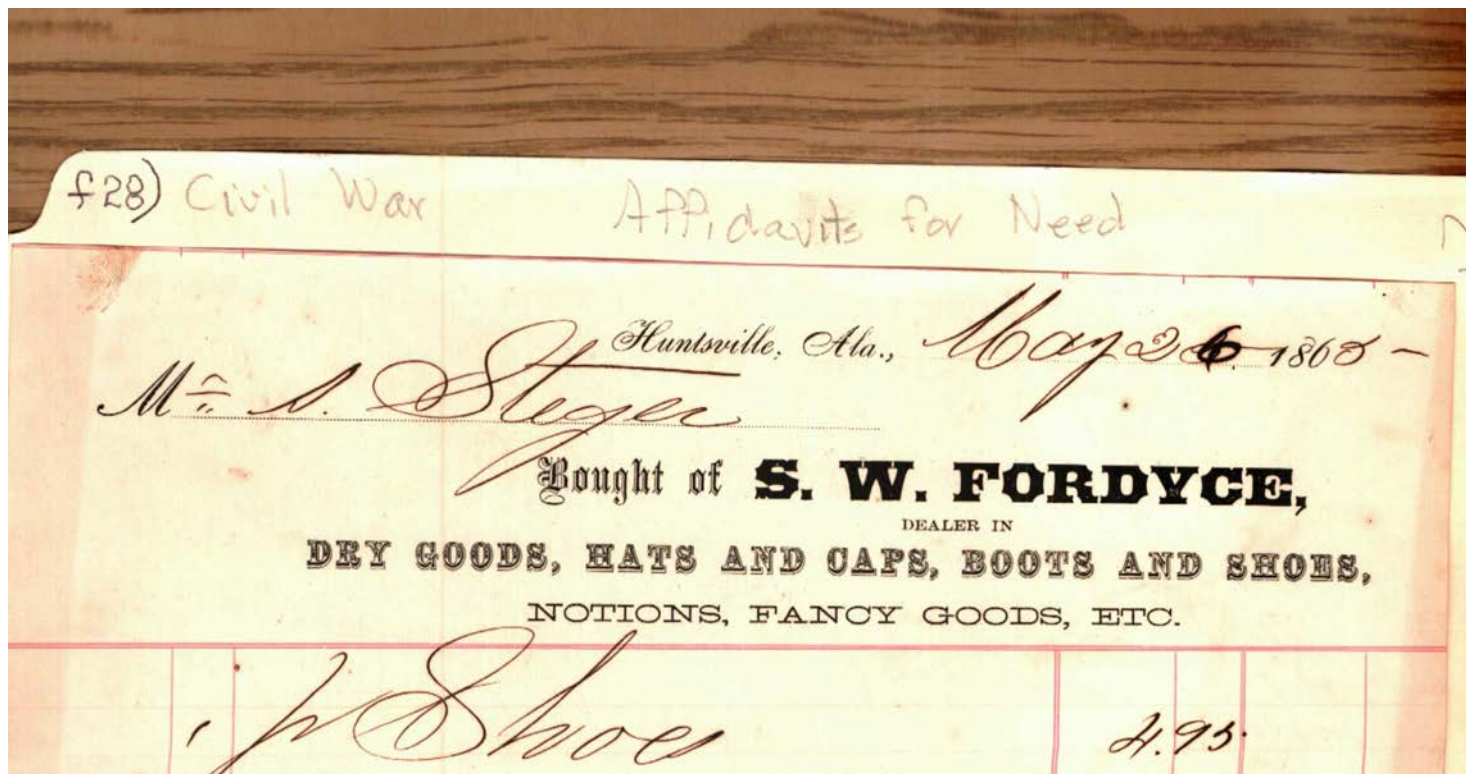 f28) Civil War Affidavits for Need
Huntsville, Ala., May 26 1865
Mr S. Steger
Bought of S. W. FORDYCE,
DEALER IN
DRY GOODS, HATS AND CAPS, BOOTS AND SHOES,
NOTIONS, FANCY GOODS, ETC.
Shoes 4.95